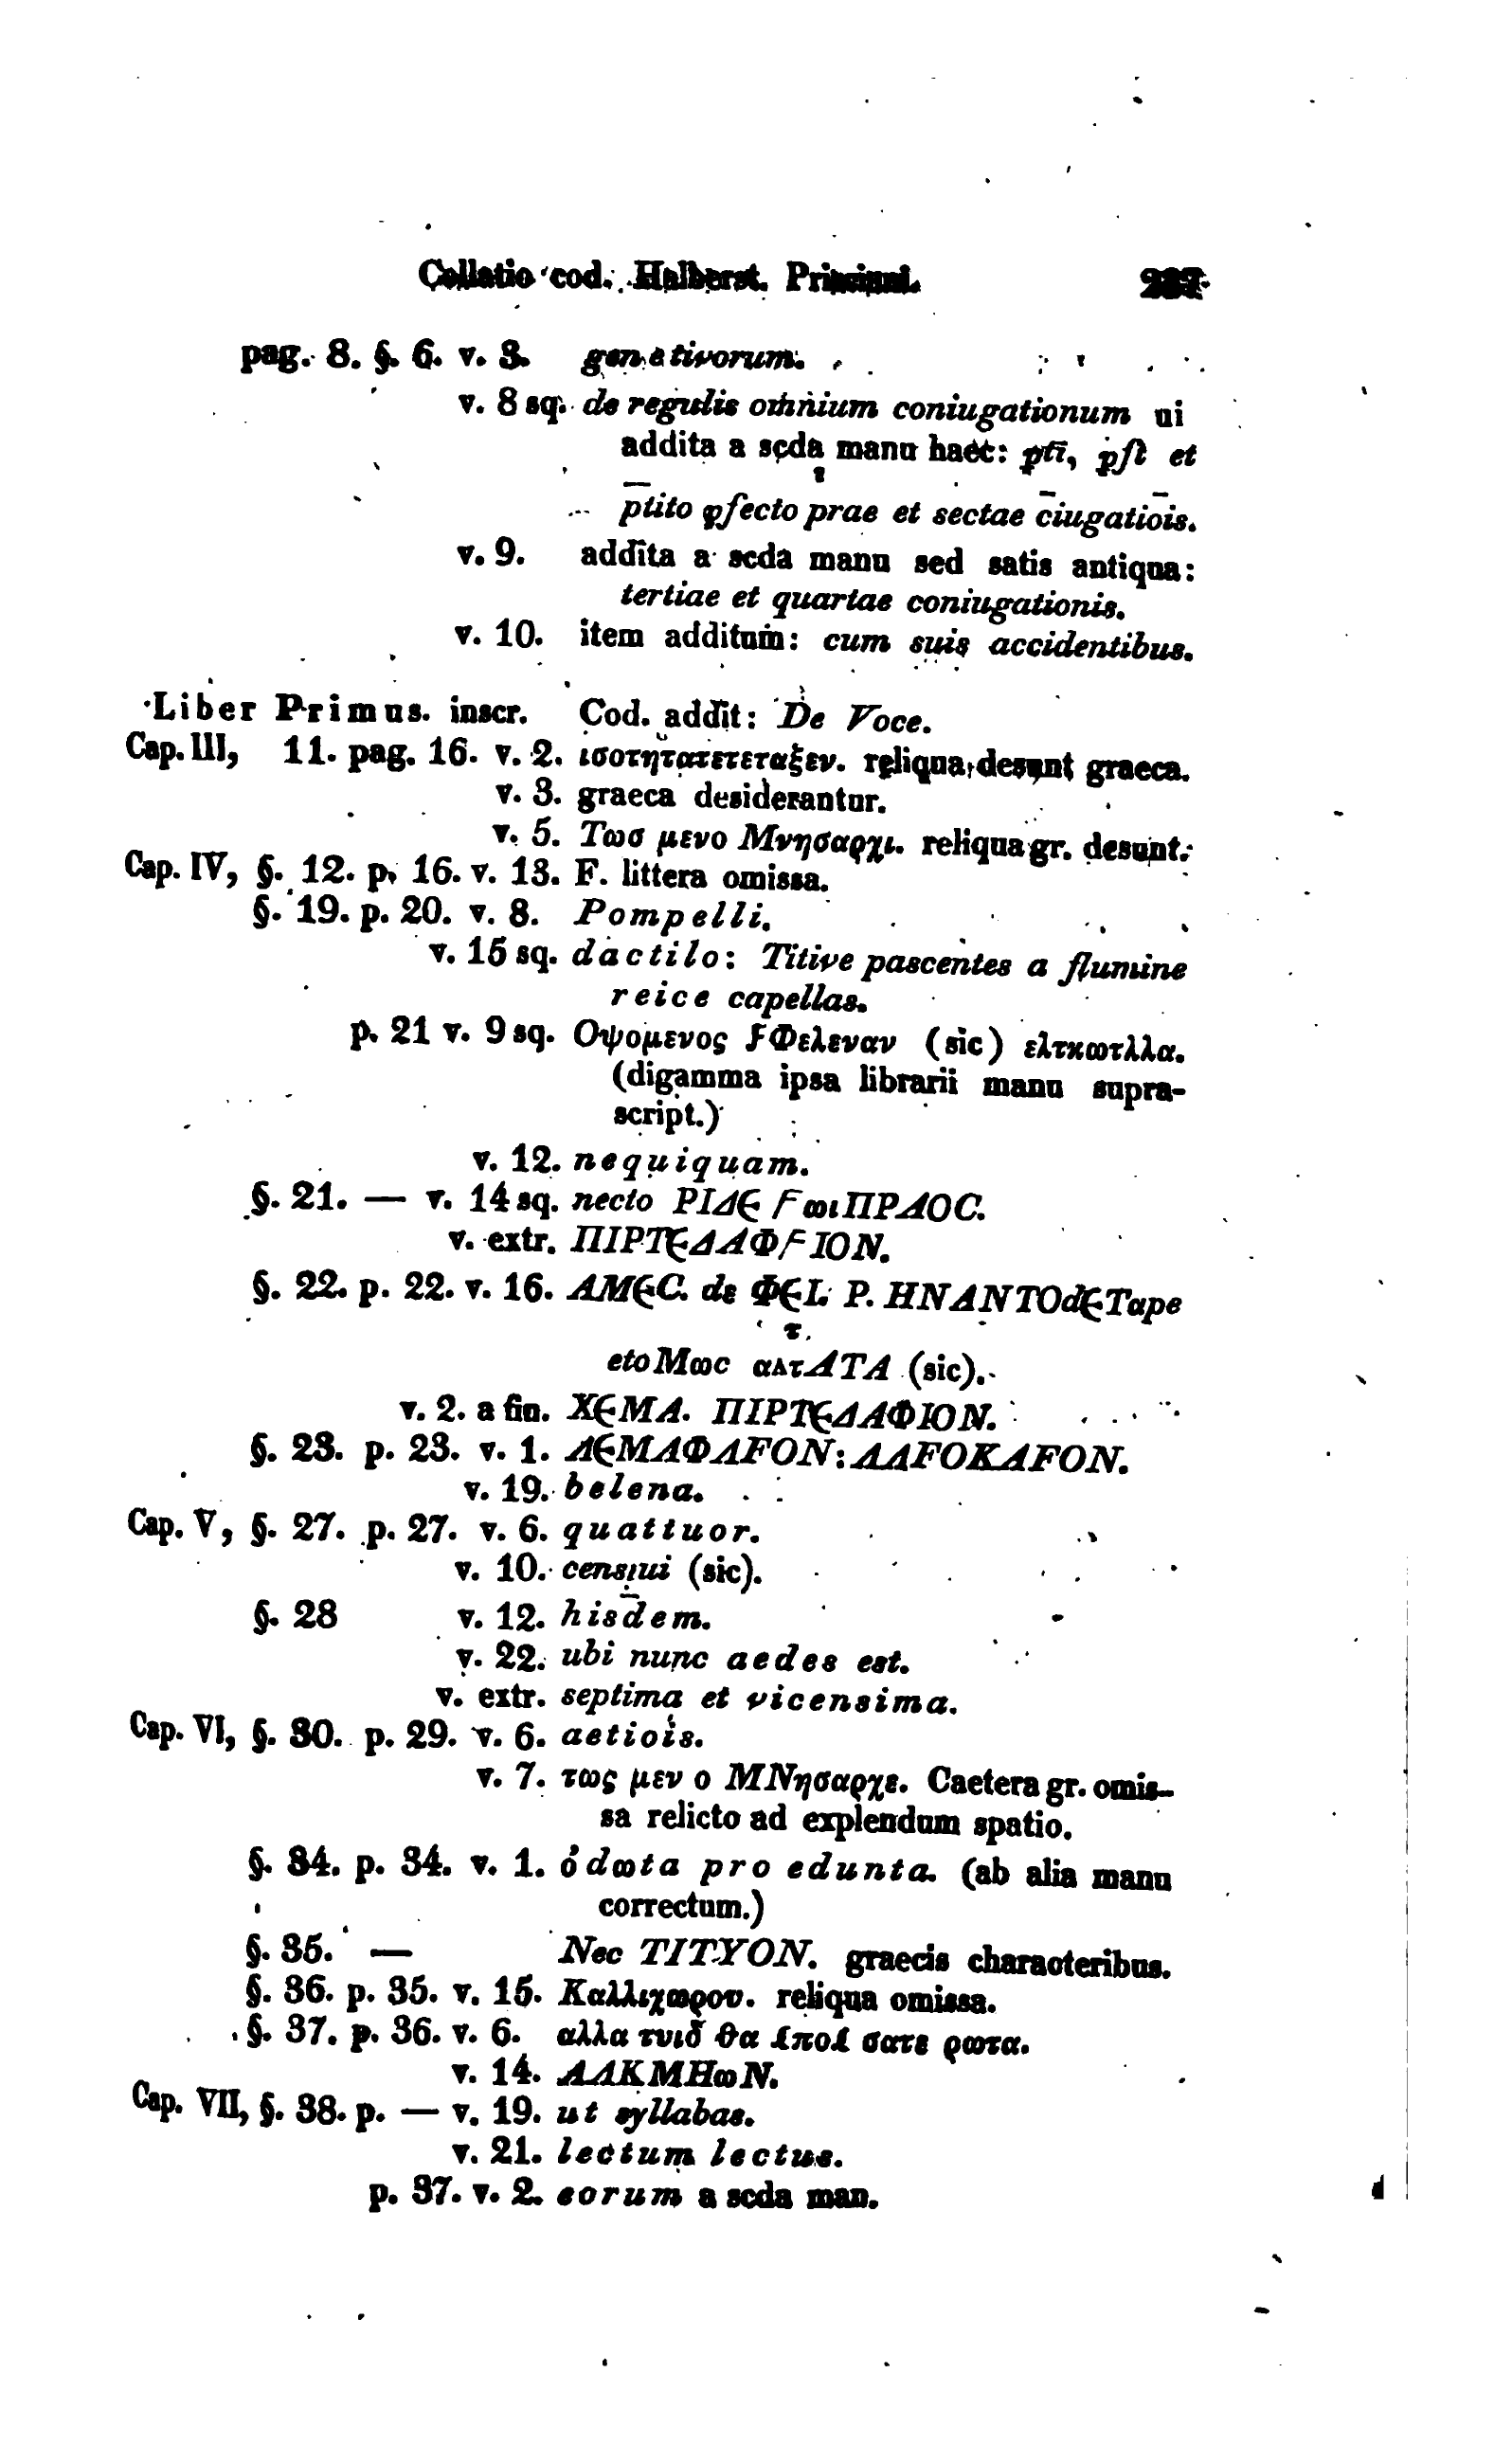 Collatio cod. Halberst. Prisciani.
pag. 8. §. 6. v. 3. genetivorum.
v. 8 sq. de regulis omnium coniugationum ui
addita a scda manu haec: pti, pſt et
ptito φfecto prae et sectae ciugatiois.
v. 9. addita a scda manu sed satis antiqua:
tertiae et quartae coniugationis.
v. 10. item additum: cum suis accidentibus.
Liber Primus. inscr. Cod. addit: De Voce.
Cap. III, 11. pag. 16. v. 2. ισοτητατετεταξεν. reliqua desunt graeca.
v. 3. graeca desiderantur.
v. 5. Τωσ μενο Μνησαρχι. reliqua gr. desunt.
Cap. IV, §. 12. p. 16. v. 13. F. littera omissa.
§. 19. p. 20. v. 8. Pompelli.
v. 15 sq. dactilo: Titive pascentes a flumine
reice capellas.
p. 21 v. 9 sq. Οψομενος ϝΦελεναν (sic) ελτκωτλλα.
(digamma ipsa librarii manu supra-
script.)
v. 12. nequiquam.
§. 21. — v. 14 sq. necto ΡΙΔЄ ϜωιΠΡΛΟC.
v. extr. ΠΙΡΤЄΔΑΦϜΙΟΝ.
§. 22. p. 22. v. 16. ΑΜЄC. dε ΦЄΙ. Ρ. ΗΝΑΝΤΟdЄΤαpe
τ
etoΜωc αλτΑΤΑ (sic).
v. 2. a fin. ΧЄΜΑ. ΠΙΡΤЄΔΑΦΙΟΝ.
§. 23. p. 23. v. 1. ΛЄΜΑΦΛFΟΝ: ΛΑFΟΚΛFΟΝ.
v. 19. belena.
Cap. V, §. 27. p. 27. v. 6. quattuor.
v. 10. censịui (sic).
§. 28 v. 12. his̄dem.
v. 22. ubi nunc aedes est.
v. extr. septima et vicensima.
Cap. VI, §. 30. p. 29. v. 6. aetiois.
v. 7. τως μεν ο ΜΝησαρχε. Caetera gr. omis-
sa relicto ad explendum spatio.
§. 34. p. 34. v. 1. ódωta pro edunta. (ab alia manu
correctum.)
§. 35. — Nec ΤΙΤΥΟΝ. graecis characteribus.
§. 36. p. 35. v. 15. Καλλιχωρου. reliqua omissa.
§. 37. p. 36. v. 6. αλλα τυιδ θα σατε ρωτα.
v. 14. ΑΛΚΜΗωΝ.
Cap. VII, §. 38. p. — v. 19. ut syllabas.
v. 21. lectum lectus.
p. 37. v. 2. eorum a scda man.